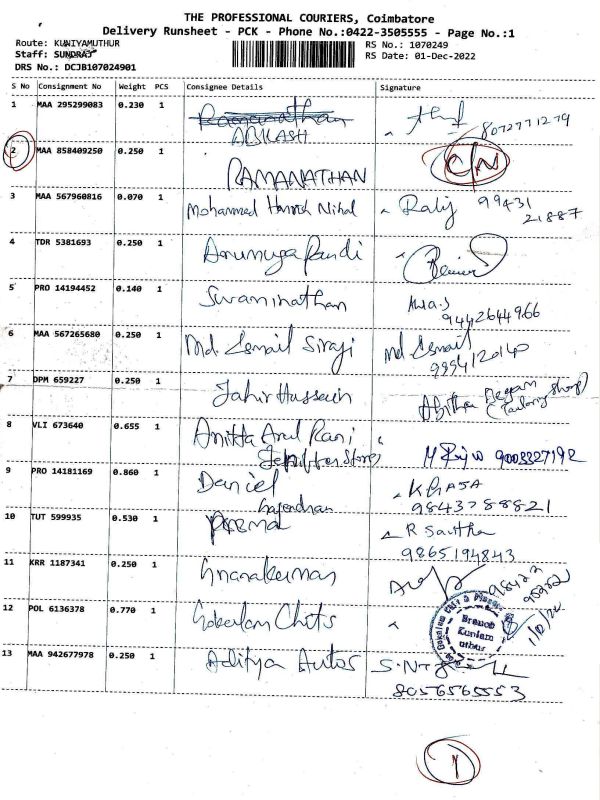 THE PROFESSIONAL COURIERS, Coimbatore
Delivery Runsheet - PCK - Phone No.:0422-3505555 - Page No.:1
Route: KUNIYAMUTHUR
Staff: SUNDRAJ
DRS No.: DCJB107024901
RS No.: 1070249
RS Date: 01-Dec-2022
S No Consignment No Weight PCS Consignee Details Signature
1 MAA 295299083 0.230 1 Ramanathan
ABKASH 8072771279
2 MAA 858409250 0.250 1 RAMANATHAN C/N
3 MAA 567960816 0.070 1 Mohammed Nihal 99431
21887
4 TDR 5381693 0.250 1 Arumuga Pandi
5 PRO 14194452 0.140 1 Swaminathan
9442644966
6 MAA 567265680 0.250 1 Md. Esmail Siraji Md Esmail
7 DPM 659227 0.250 1 Jahir Hussain Abitha Begam
(Tailoring Shop)
8 VLI 673640 0.655 1 Anitta Arul Rani
Stores 9003327192
9 PRO 14181169 0.860 1 Daniel KHASA
Rajendran 9843788821
10 TUT 599935 0.530 1 R Savitha
9865194843
11 KRR 1187341 0.250 1 Gnanakumar
12 POL 6136378 0.770 1 Gokulam Chits
Branch
Kuniam
uthur
13 MAA 942677978 0.250 1 Aditya Autos
8056565553
1